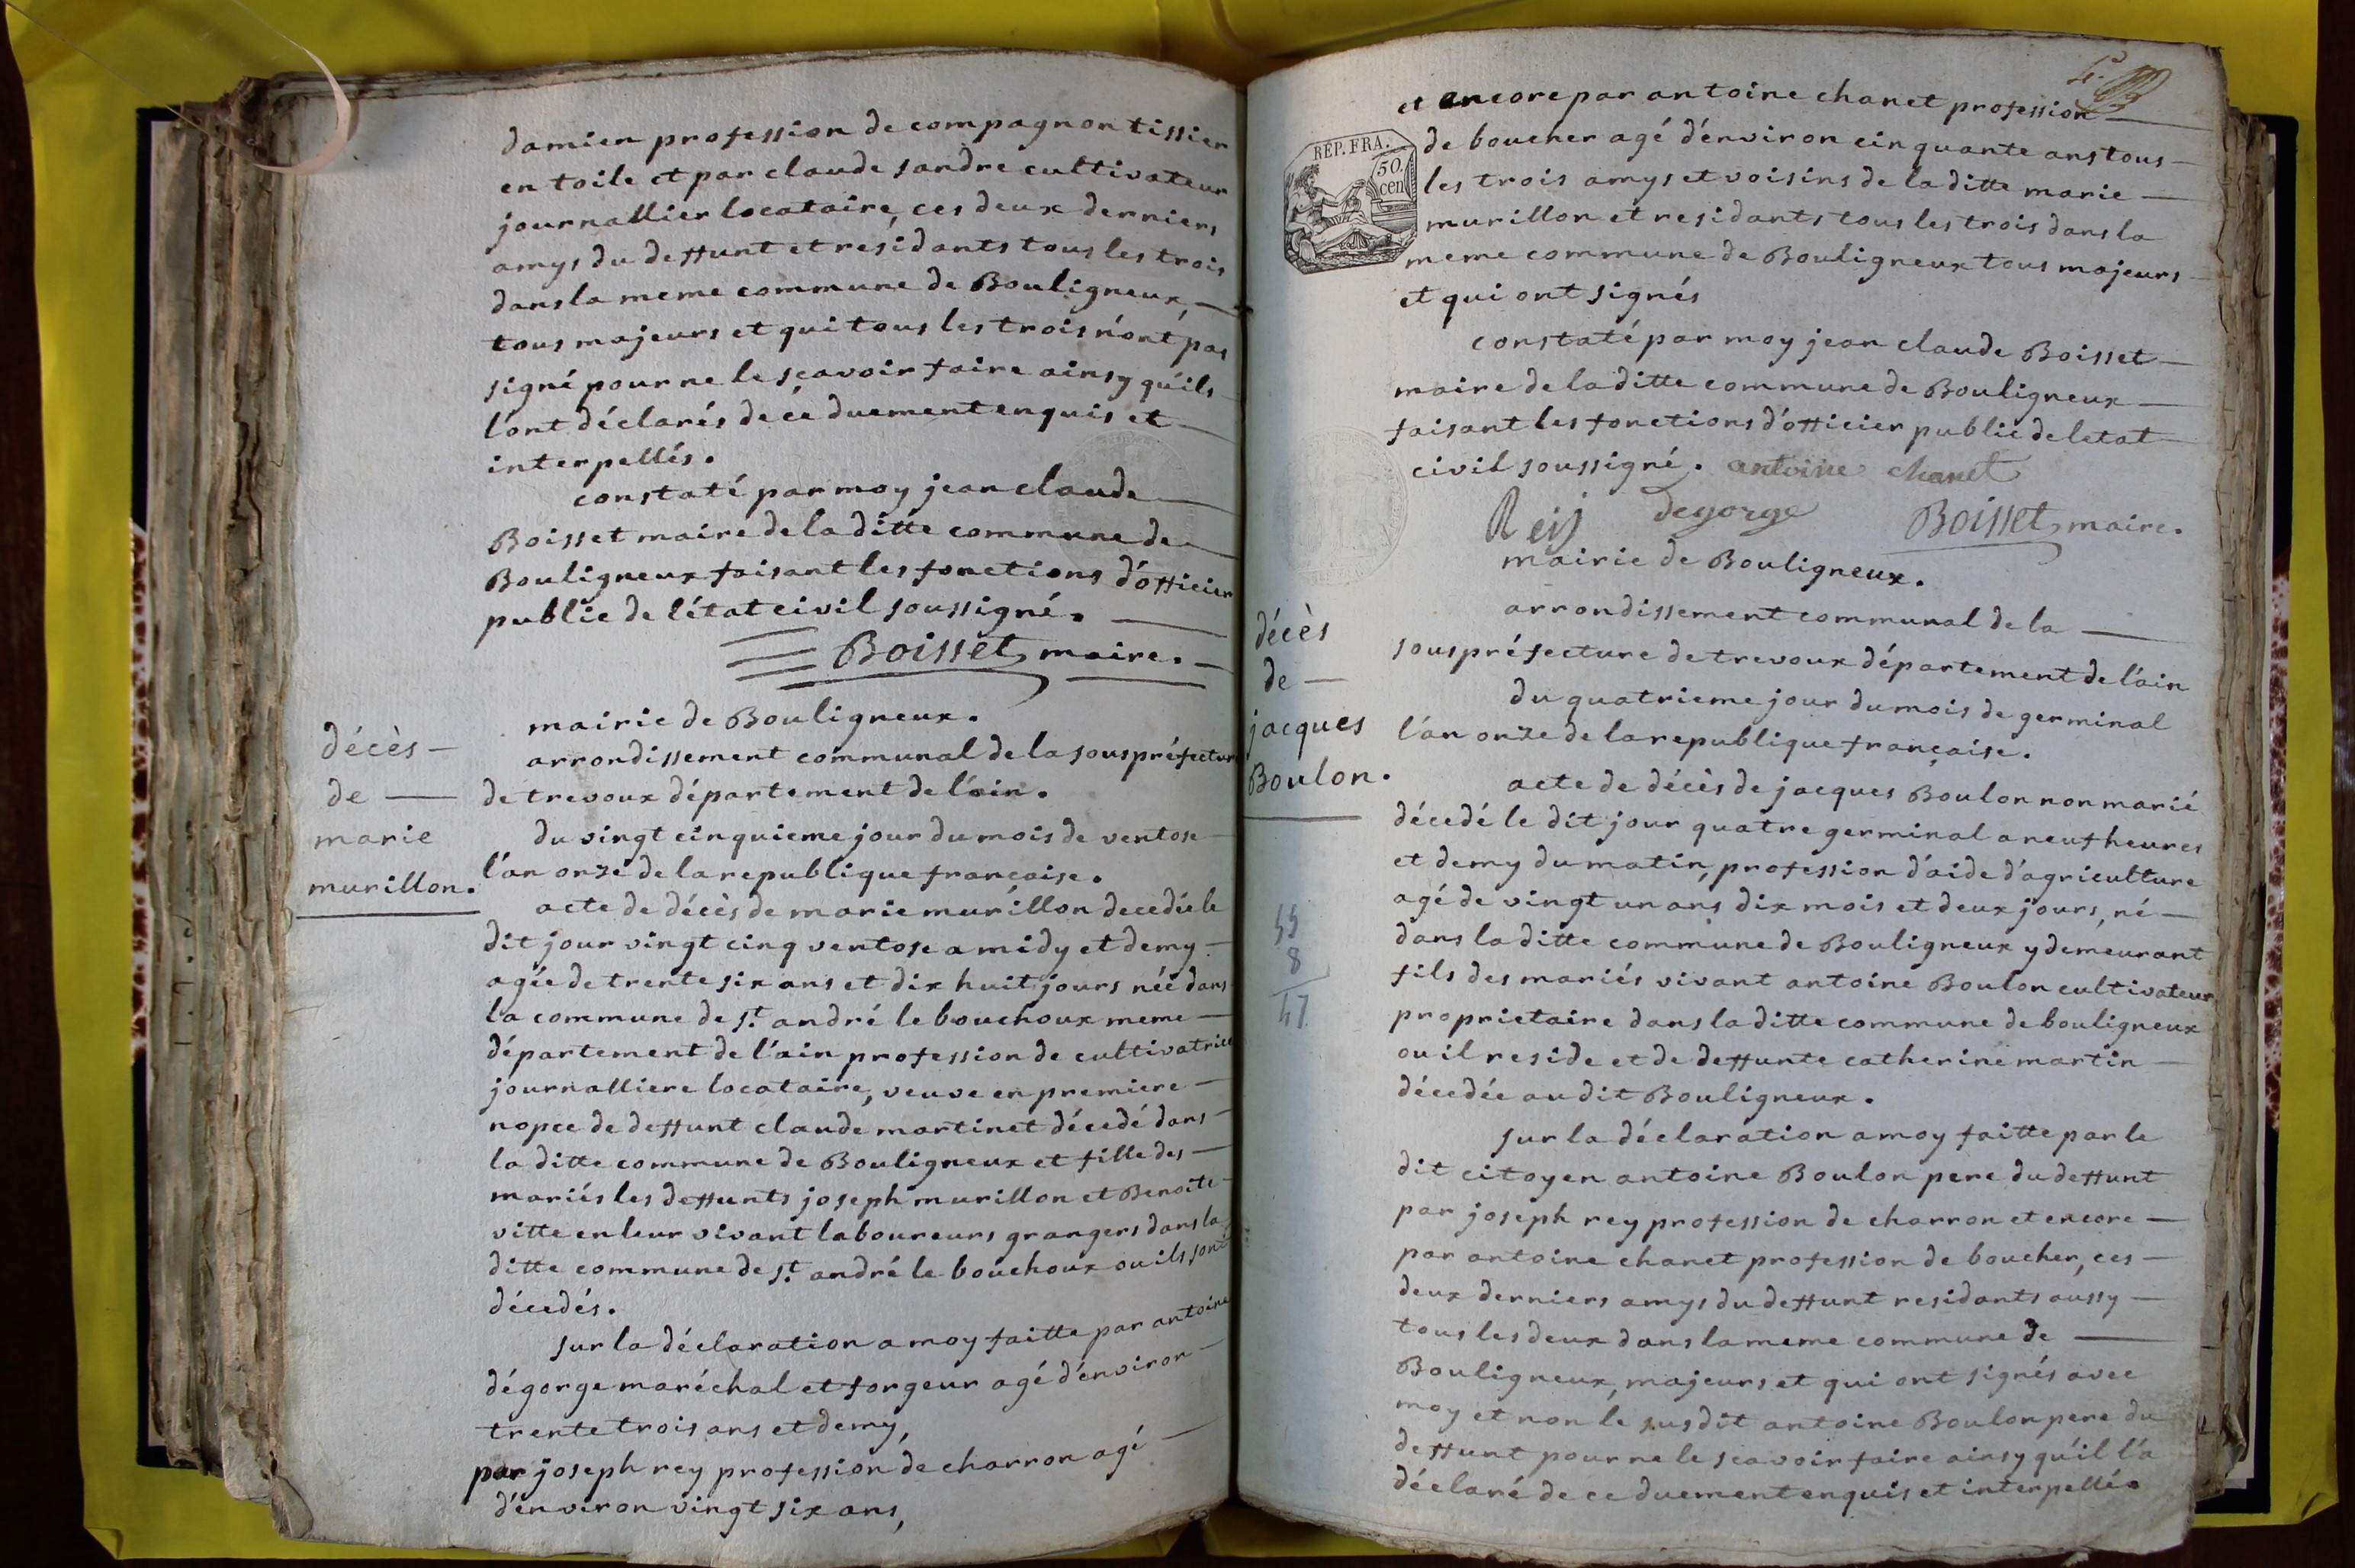 damien profession de compagnon tissier
en toile et par claude sandre cultivateur
journallier locataire, ces deux derniers
amys du deffunt et résidants tous les trois
dans la meme commune de Bouligneux,
tous majeurs et qui tous les trois n'ont pas
signé pour ne le sçavoir faire ainsy qu'ils
l'ont déclarés de ce duement enquis et
interpellés.
constaté par moy jean claude
Boisset maire de la ditte commune de
Bouligneux faisant les fonctions d'officier
public de l'état civil soussigné.
Boisset maire.
décès
de
marie
murillon.
mairie de Bouligneux.
arrondissement communal de la souspréfecture
de trevoux département de l'ain.
du vingt cinquieme jour du mois de ventose
l'an onze de la republique française.
acte de décès de marie murillon decedée le
dit jour vingt cinq ventose a midy et demy
agée de trente six ans et dix huit jours née dans
la commune de st. andré le bouchoux meme
département de l'ain profession de cultivatrice
journalliere locataire, veuve en premiere
nopce de deffunt claude martinet décedé dans
la ditte commune de Bouligneux et fille des
mariés les deffunts joseph murillon et Benoite
vitte en leur vivant laboureurs grangers dans la
ditte commune de st. andré le bouchoux ou ils sont
décedés.
sur la déclaration a moy faitte par antoine
dégorge maréchal et forgeur agé d'environ
trente trois ans et demy,
par joseph rey profession de charron agé
d'environ vingt six ans,
et encore par antoine chanet profession
REP. FRA.
50.
cen
de boucher agé d'environ cinquante ans tous
les trois amys et voisins de la ditte marie
murillon et residants tous les trois dans la
meme commune de Bouligneux tous majeurs
et qui ont signés
constaté par moy jean claude Boisset
maire de la ditte commune de Bouligneux
faisant les fonctions d'officier public de letat
civil soussigné. antoine chanet
Reij degorge Boisset maire.
décès
de
jacques
Boulon.
mairie de Bouligneux.
arrondissement communal de la
souspréfecture de trevoux département de l'ain
du quatrieme jour du mois de germinal
l'an onze de la republique française.
acte de décès de jacques Boulon non marié
décedé le dit jour quatre germinal a neuf heures
et demy du matin, profession d'aide d'agriculture
agé de vingt un ans dix mois et deux jours, né
dans la ditte commune de Bouligneux y demeurant
fils des mariés vivant antoine Boulon cultivateur
proprietaire dans la ditte commune de bouligneux
ou il reside et de deffunte catherine martin
décedée au dit Bouligneux.
55
8
47
sur la déclaration a moy faitte par le
dit citoyen antoine Boulon pere du deffunt
par joseph rey profession de charron et encore
par antoine chanet profession de boucher, ces
deux derniers amys du deffunt residants aussy
tous les deux dans la meme commune de
Bouligneux, majeurs et qui ont signés avec
moy et non le susdit antoine Boulon pere du
deffunt pour ne le scavoir faire ainsy qu'il l'a
déclaré de ce duement enquis et interpellé.